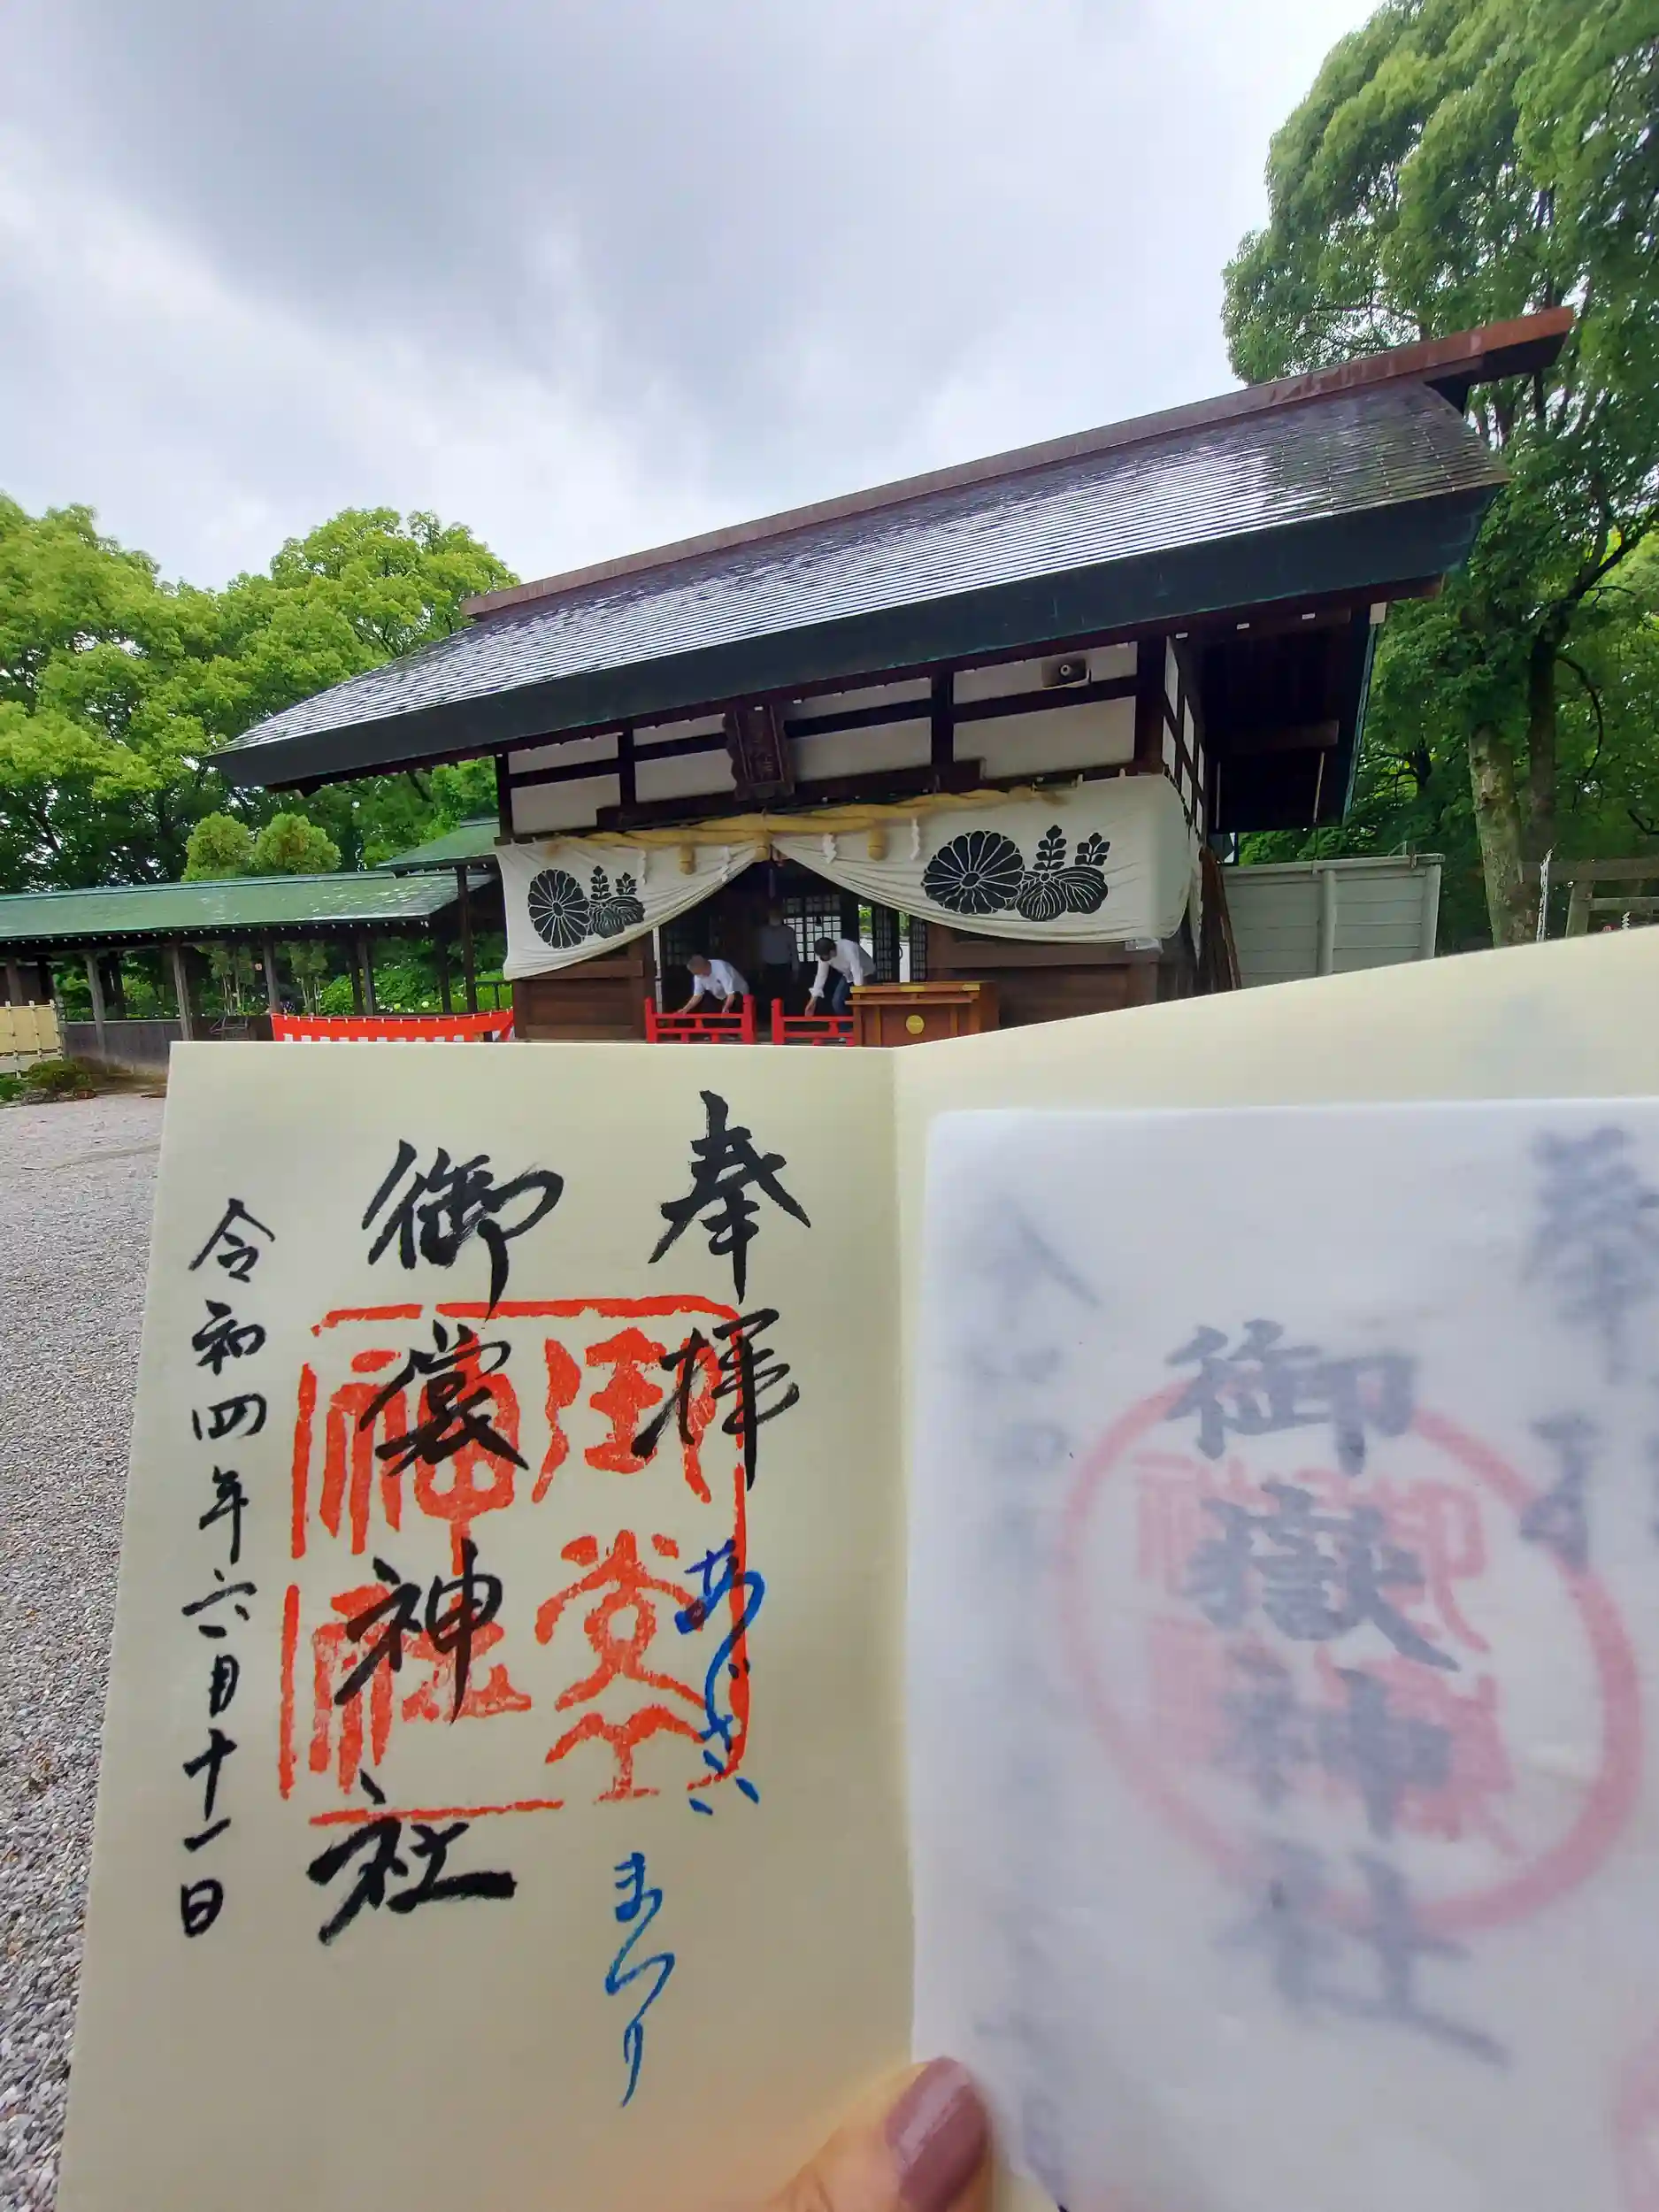 御嶽神社
奉拝
あじさい
まつり
御裳神社
御裳
神社
令和四年六月十一日